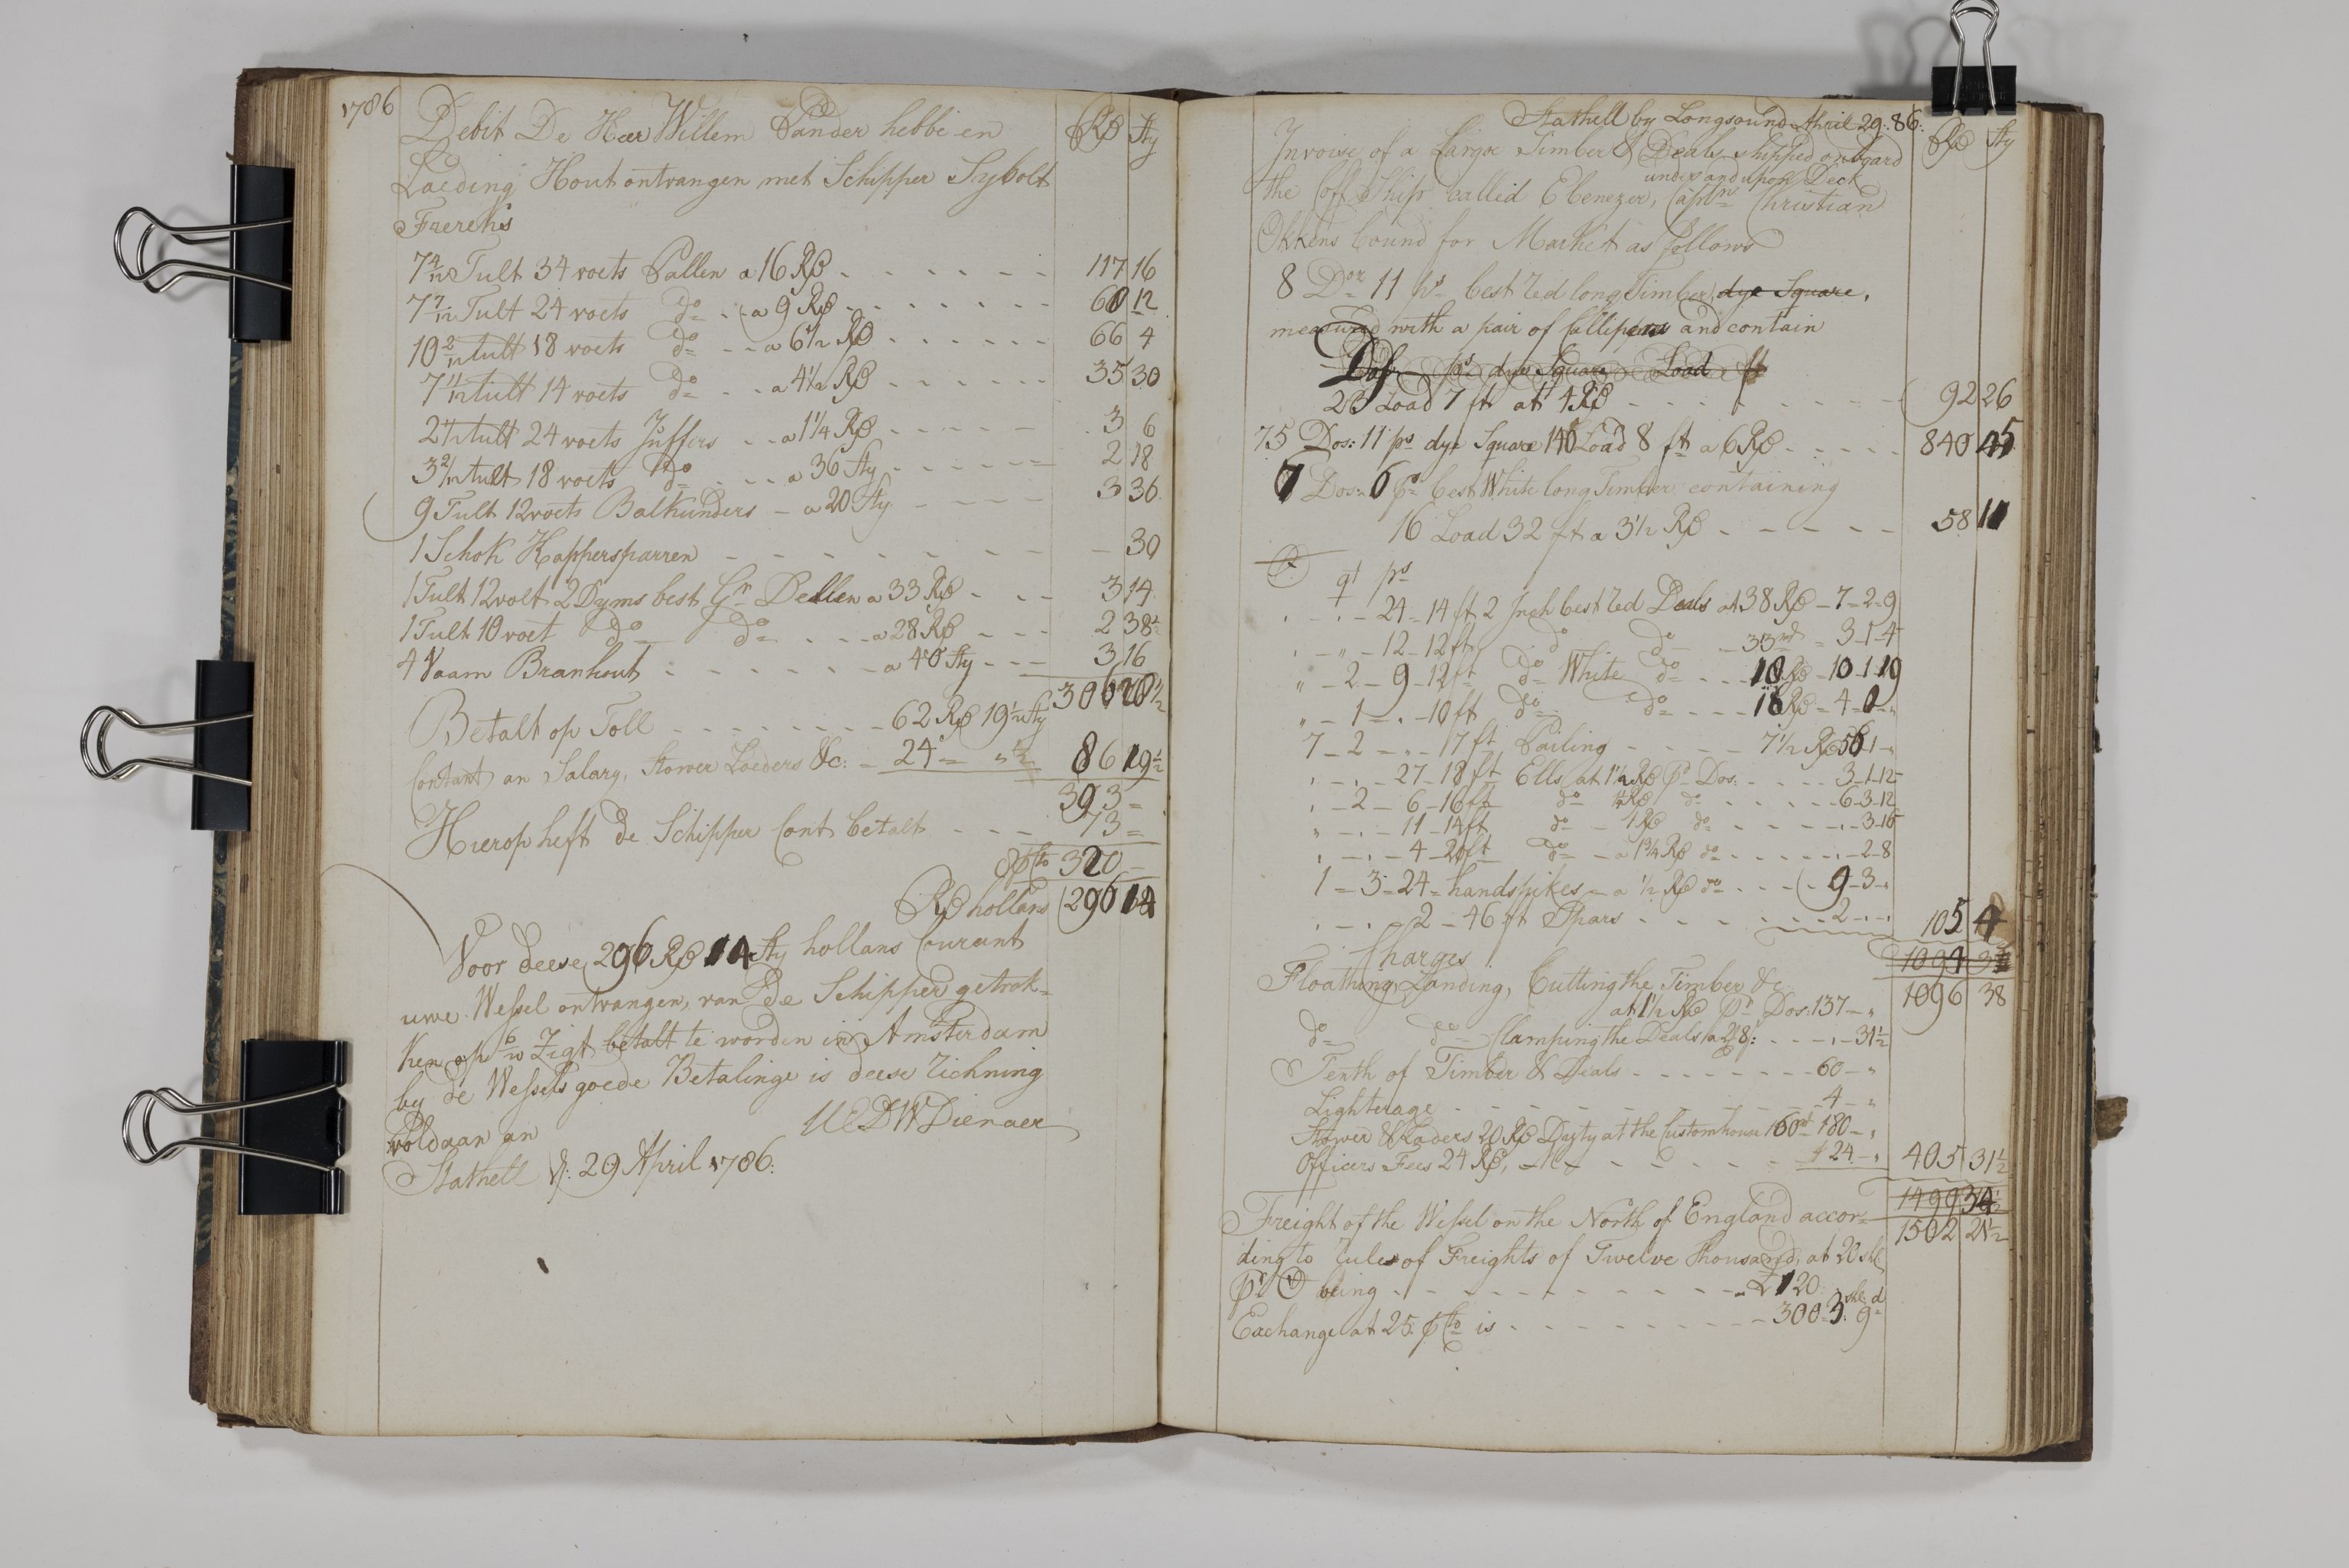 1786
Debit De Heer Willem Sander hebbe en Rd Sty
Laeding Hout ontvangen met Schipper Sybolt
Frerehs
7 4/12 Tult 34 voets Ballen a 16 Rd - - - - - - - 117 16
7 7/12 Tult 24 voets do - - a 9 Rd - - - - - - - 68 12
10 2/12 tult 18 voets do - - a 6 1/2 Rd - - - - - - 66 4
7 11/12 tult 14 voets do - - a 4 1/2 Rd - - - - - - 35 30
2 1/2 tult 24 voets Juffers - - a 1 1/4 Rd - - - - - 3 6
3 2/12 tult 18 voets do - - - a 36 Sty - - - - - - 2 18
9 Tult 12 voets Balkunders - a 20 Sty - - - - 3 36
1 Schok Happersparren - - - - - - - - - 30
1 Tult 12 voet 2 Dyms best Gr Dellen a 33 Rd - - - 3 14
1 Tult 10 voet do do - - - a 28 Rd - - - 2 38 1/2
4 Vaam Branhout - - - - - - a 40 Sty - - - 3 16
306 28 1/2
Betalt op Toll - - - - - - - 62 Rd 19 1/2 Sty
Contant an Salary, Stower Loeders &c: - 24 = " 86 19 1/2
393 =
Hierop heft de Schipper Cont betalt - - - 73 =
320 -
Rd hollans 296 14
Voor deese 296 Rd 14 Sty hollans Courant
uwe Wessel ontvangen, van de Schipper getrok=
ken op Zigt betalt te worden in Amsterdam
by de Wessels goede Betalinge is deese Richning
voldaan an UEDW Dienaer
Stathell d: 29 April 1786.
Stathell by Longsound April 29: 86: Rd Sty
Invoise of a Cargoe Timber & Deals shipped onboard
under and upon Deck
the Coff Ship called Ebenezer, Captn Christian
Okkens bound for Market as follows
8 Doz 11 ps best red long Timber, dye Square,
measured with a pair of Callipers and contain
Dos ps dye Square Load ft
23 Load 7 ft at 4 Rd - - - - - - - - 92 26
75 Dos: 11 ps dye Square 140 Load 8 ft a 6 Rd - - - - - 840 45
7 Dos: 6 ps best White long Timber containing
16 Load 32 ft a 3 1/2 Rd - - - - - 58 11
qt ps
" - " - 24 - 14 ft 2 Inch best red Deals at 38 Rd - 7 - 2 - 9
" - " - 12 - 12 ft do do - 33 rd - 3 - 1 - 4
" - 2 - 9 - 12 ft do White do - - - 18 Rd - 10 - 1 - 19
" - 1 - " - 10 ft do do - - - 16 Rd - 4 - 0 - "
7 - 2 - " - 17 ft Pailing - - - - - 7 1/2 Rd 56 - 1 - "
" - " - 27 - 18 ft Ells at 1 1/2 Rd pr Dos: - - - - 3 - 1 - 12
" - 2 - 6 - 16 ft do do - - - - - 6 - 3 - 12
" - " - 11 - 14 ft do - 1 Rd do - - - - - " - 3 - 16
" - " - 4 - 20 ft do - a 1 3/4 Rd do - - - - - " - 2 - 8
1 - 3 - 24 - handspikes - a 1/2 Rd do - - - - 9 - 3 - "
" - " - 2 - 46 ft Spars - - - - - - - 2 - " - " 105 4
Charges 1094
Floathing, Landing, Cutting the Timber &c 1096 38
at 1 1/2 Rd pr Dos: 137 - "
do do Clamping the Deals a 2/8: - - - " - 31 1/2
Tenth of Timber & Deals - - - - - - - - 60 - "
Lighterage - - - - - - - - 4 - "
Stower & Loders 20 Rd Duyty at the Customhouse 160 rd - 180 - "
Officers Fees 24 Rd, - - - - - - - - 24 - " 405 31 1/2
1499 34 1/2
Freight of the Wessel on the North of England accor= 1502 21 1/2
ding to rules of Freights of Twelve thousand, at 20 shl
pr being - - - - - - - - - - - - £ 120
Exchange at 25 p Cto is - - - - - - - - - 300 3 shl: 9 d